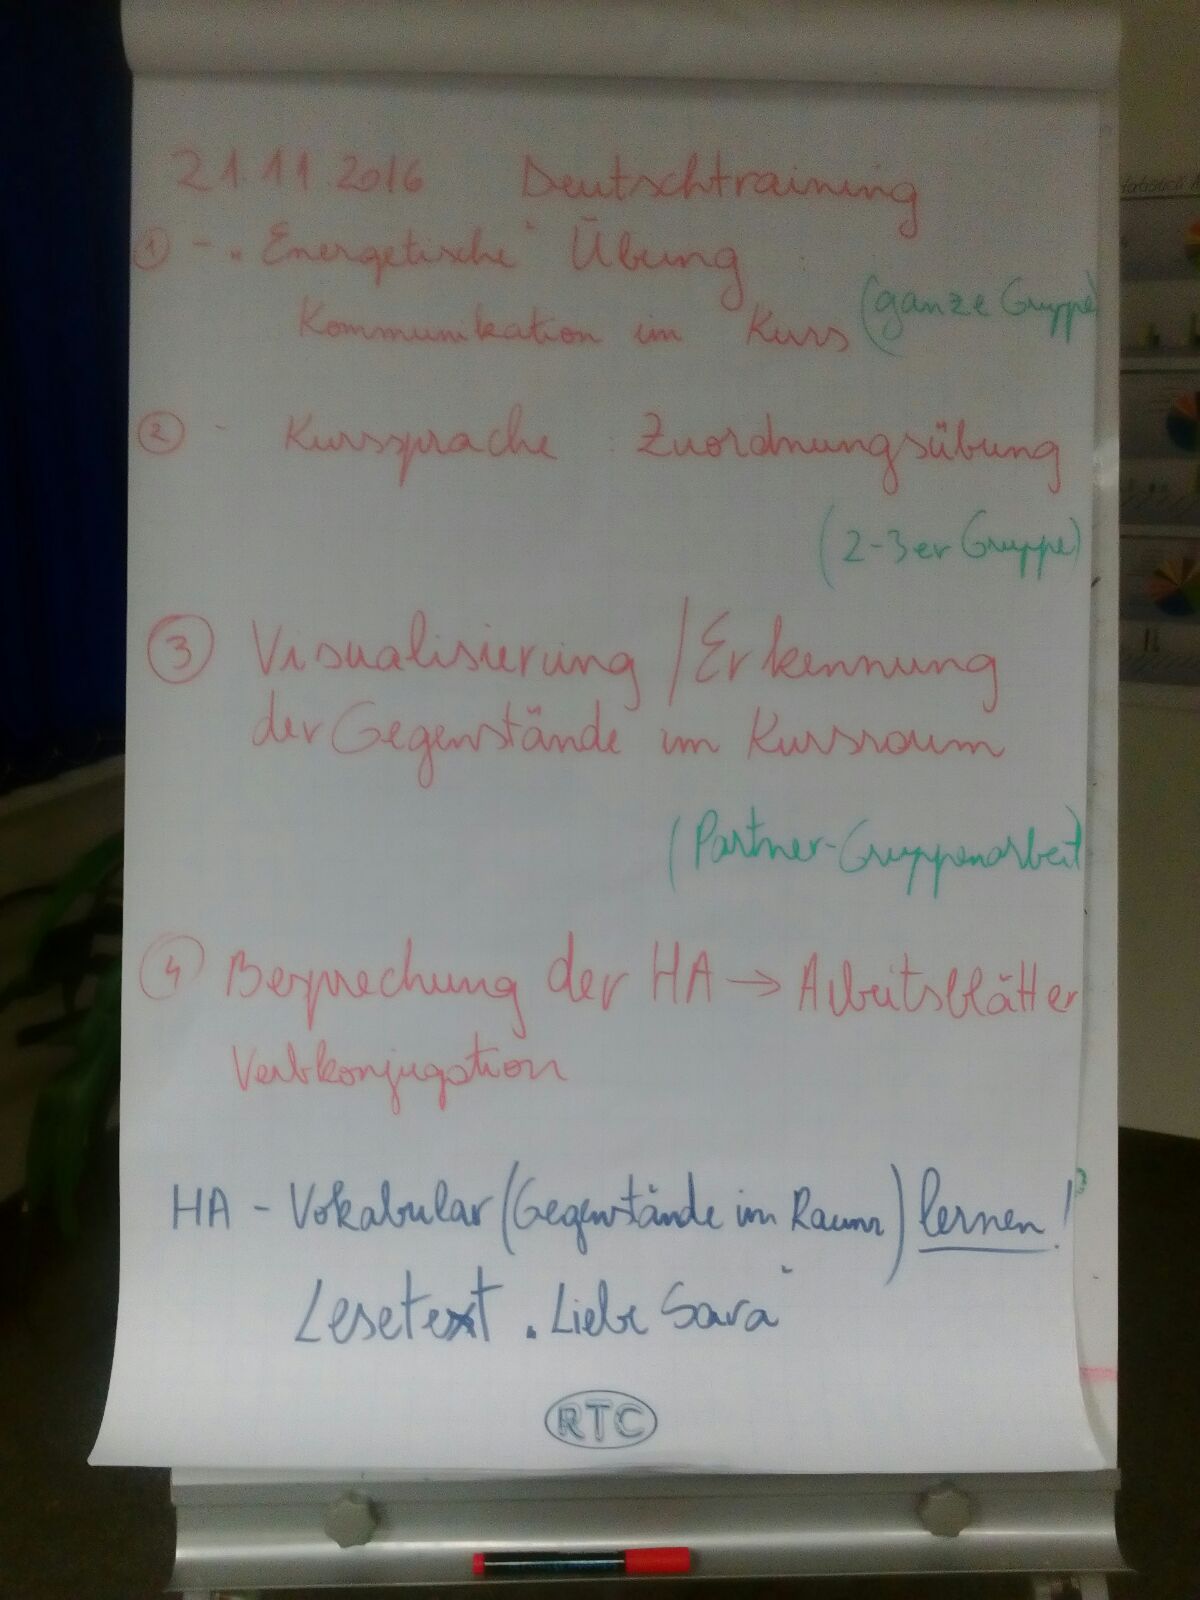 21.11.2016 Deutschtraining
① - „Energetische" Übung
Kommunikation im Kurs (ganze Gruppe)
② - Kurssprache Zuordnungsübung
(2-3er Gruppe)
③ Visualisierung / Erkennung
der Gegenstände im Kursraum
(Partner-Gruppenarbeit
④ Besprechung der HA → Arbeitsblätter
Verbkonjugation
HA - Vokabular (Gegenstände im Raum) lernen!
Lesetext „Liebe Sara"
RTC